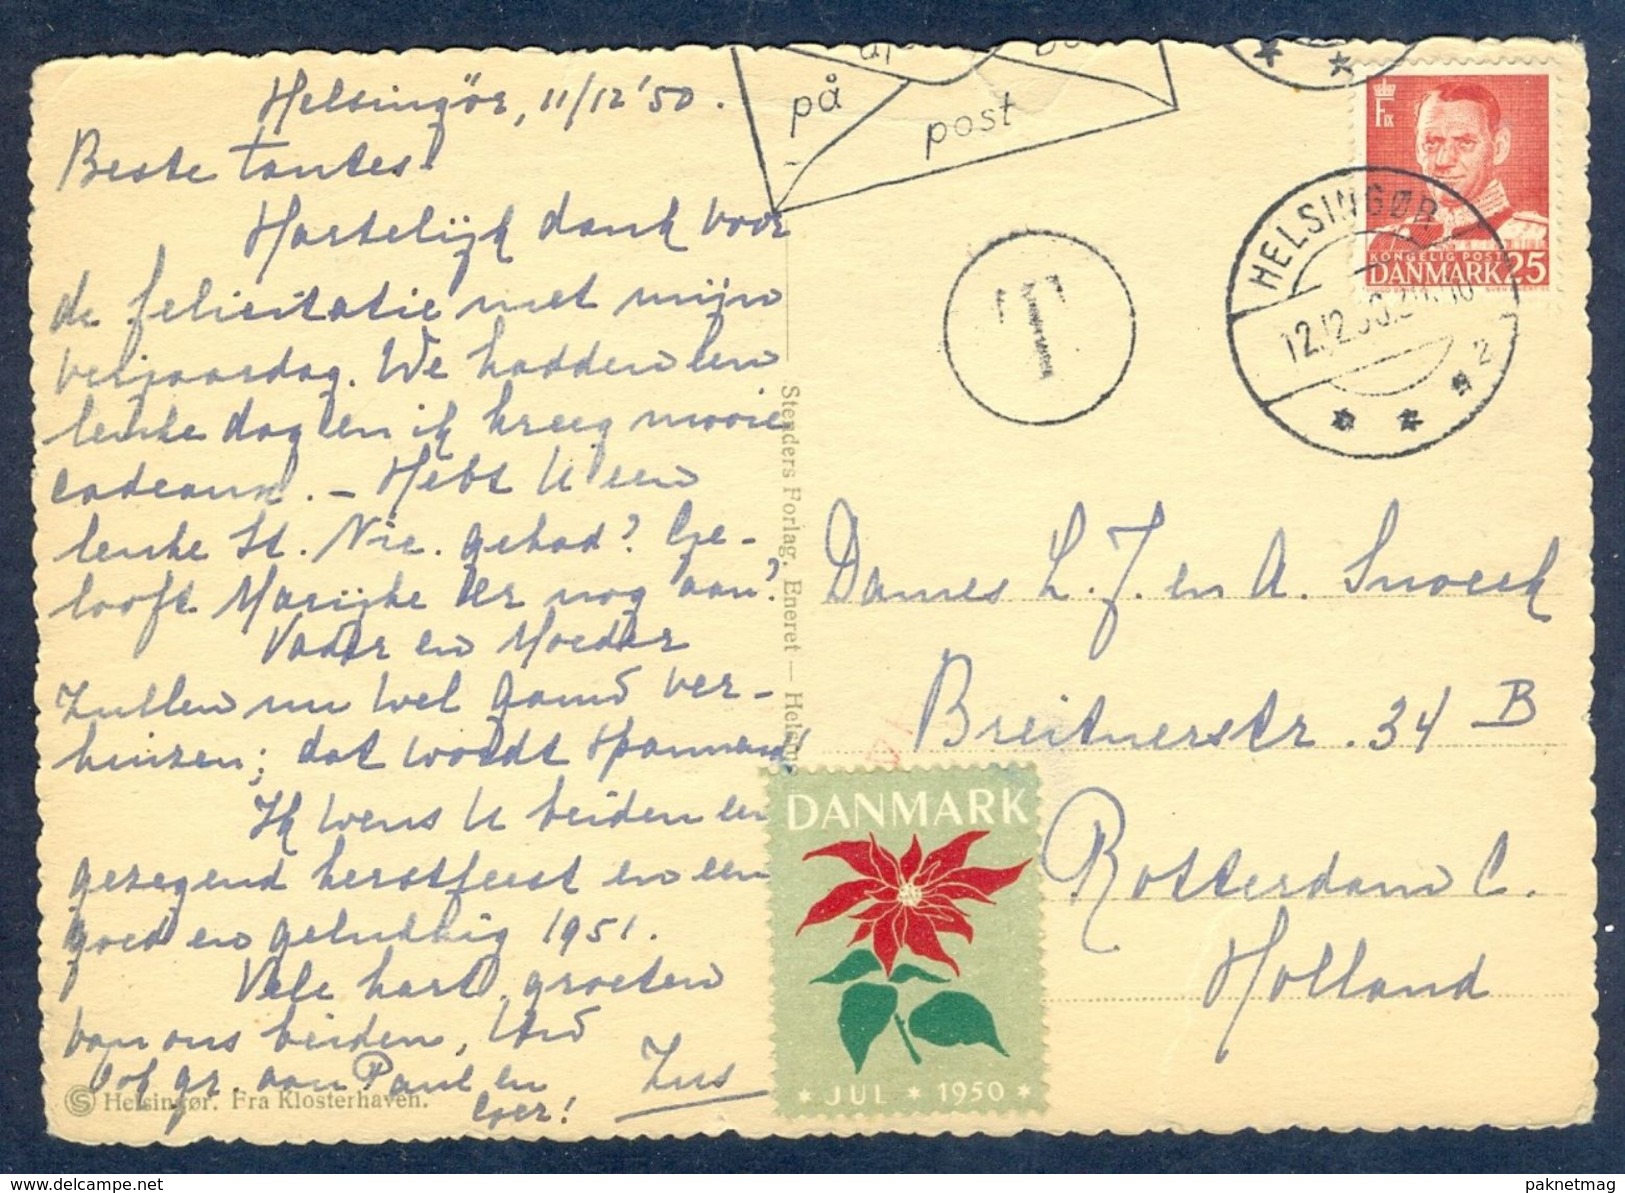 Helsingör, 11/12 '50.
Beste tantes!
Hartelijk dank voor
de felicitatie met mijn
verjaardag. We hadden een
leuke dag en ik kreeg mooie
cadeaux. — Hebt U een
leuke St. Nic. gehad? Ge-
looft Marijke er nog aan?
Vader en Moeder
zullen nu wel gauw ver-
huizen; dat wordt spannend!
Ik wens U beiden een
gezegend kerstfeest en een
goed en gelukkig 1951.
Vele hart. groeten
van ons beiden, Uw
Zus
ook gr. aan Paul en
Helsingør. Fra Klosterhaven.
Stenders Forlag. Eneret —
på
post
T
HELSINGØR
12.12.50
2
F IX
KONGELIG POST
DANMARK 25
Dames L. J. en A. Snoeck
Breitnerstr. 34 B
Rotterdam C.
Holland
DANMARK
* JUL * 1950 *
www.delcampe.net
paknetmag